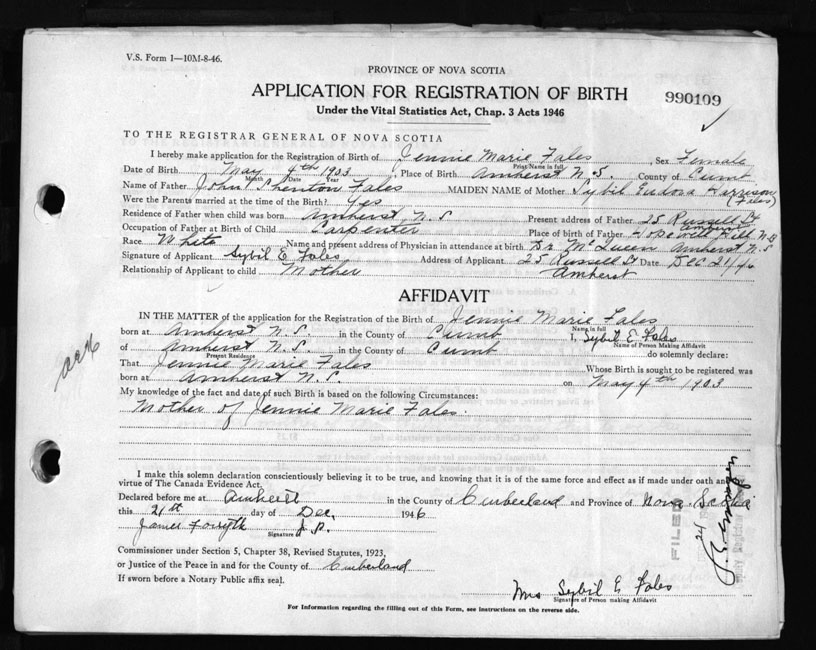 V.S. Form 1—10M-8-46.
PROVINCE OF NOVA SCOTIA
APPLICATION FOR REGISTRATION OF BIRTH
990109
Under the Vital Statistics Act, Chap. 3 Acts 1946
TO THE REGISTRAR GENERAL OF NOVA SCOTIA
I hereby make application for the Registration of Birth of Jennie Marie Fales, Sex Female
Print Name in full
Date of Birth May 4th 1903, Place of Birth Amherst N.S. County of Cumt
Month Date Year
Name of Father John Shenton Fales MAIDEN NAME of Mother Sybil Eudora Harrison
(Fales)
Were the Parents married at the time of the Birth? Yes
Residence of Father when child was born Amherst N.S Present address of Father 25 Russell St
Amherst
Occupation of Father at Birth of Child Carpenter Place of birth of Father Hopewell Hill N.B
Race White Name and present address of Physician in attendance at birth Dr McQueen Amherst N.S
Signature of Applicant Sybil E Fales Address of Applicant 25 Russell St Date Dec 21/46
Relationship of Applicant to child Mother Amherst
AFFIDAVIT
IN THE MATTER of the application for the Registration of Birth of Jennie Marie Fales
Name in full
born at Amherst N.S. in the County of Cumt I, Sybil E Fales
Name of Person Making Affidavit
of Amherst N.S. in the County of Cumt do solemnly declare:
Present Residence
That Jennie Marie Fales Whose Birth is sought to be registered was
born at Amherst N.S. on May 4th 1903
My knowledge of the fact and date of such Birth is based on the following Circumstances:
Mother of Jennie Marie Fales.
I make this solemn declaration conscientiously believing it to be true, and knowing that it is of the same force and effect as if made under oath and by
virtue of The Canada Evidence Act.
Declared before me at Amherst in the County of Cumberland and Province of Nova Scotia
this 21st day of Dec, 1946
James Forsyth J.P.
Signature of
FILED
24
Commissioner under Section 5, Chapter 38, Revised Statutes, 1923,
or Justice of the Peace in and for the County of Cumberland
If sworn before a Notary Public affix seal.
Mrs Sybil E Fales
Signature of Person making Affidavit
For Information regarding the filling out of this Form, see instructions on the reverse side.